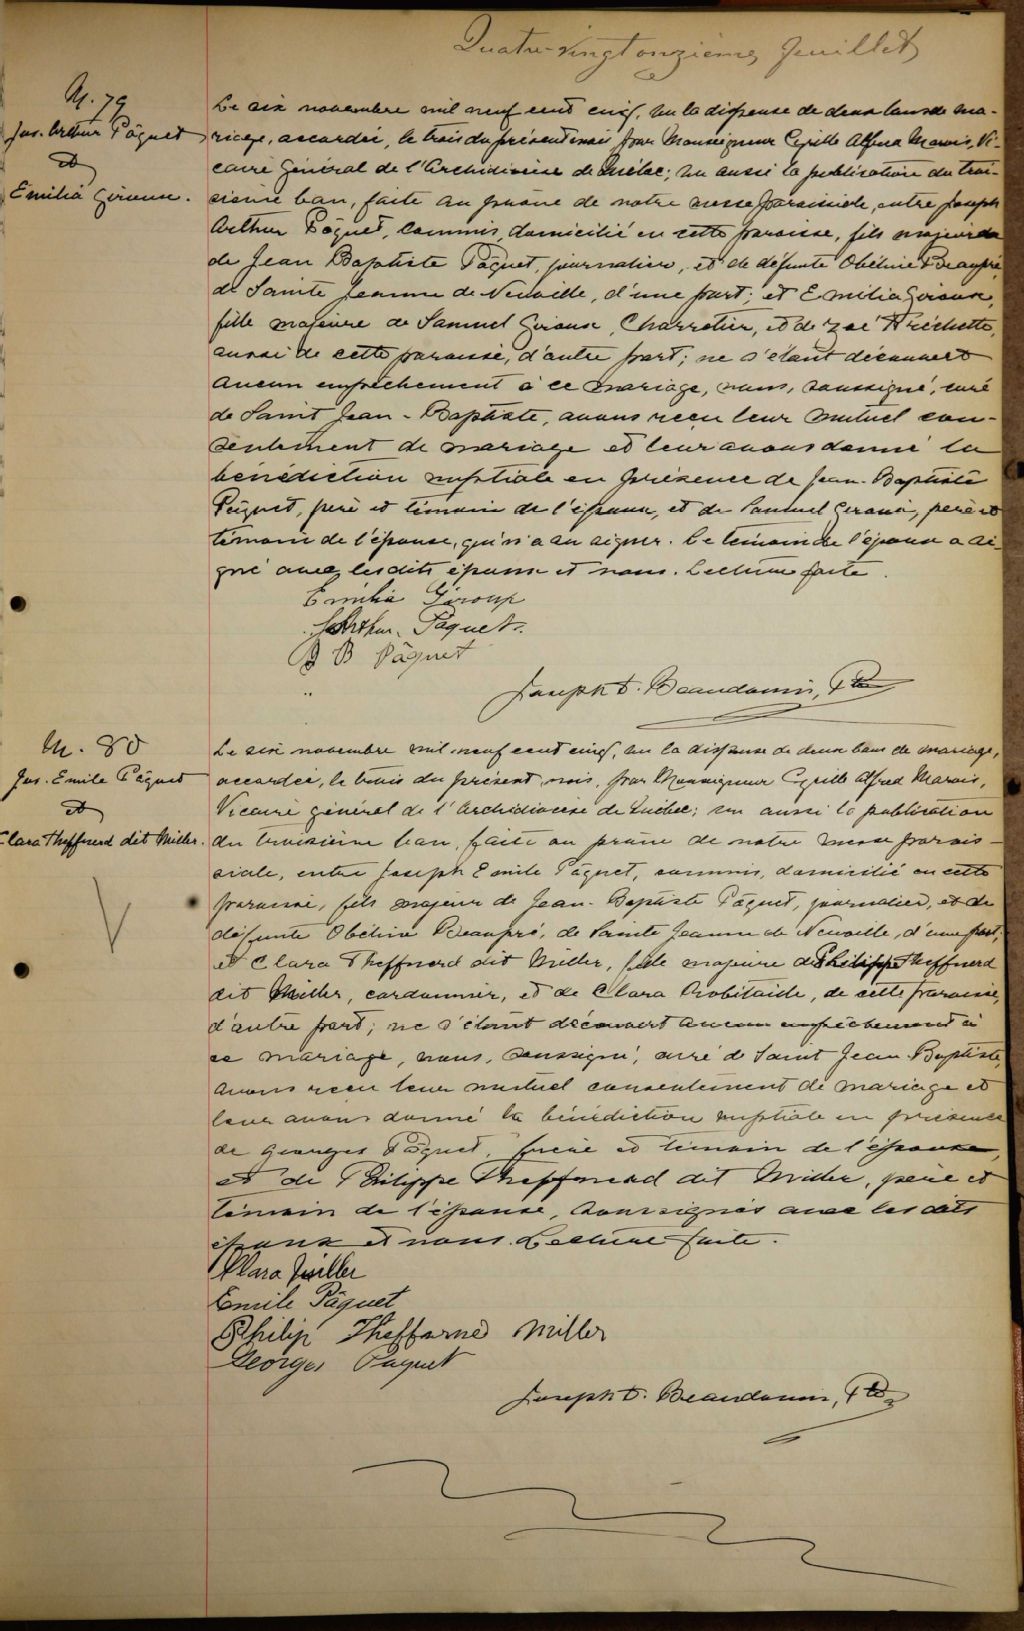 Quatre-vingt onzième feuillet
M. 79
Jos. Arthur Pâquet
et
Emilia Giroux.
Le six novembre mil neuf cent cinq, vu la dispense de deux bans de ma-
riage, accordée, le trois du présent mois, par Monseigneur Cyrille Alfred Marois, Vi-
caire Général de l'Archidiocèse de Québec; vu aussi la publication du troi-
sième ban, faite au prône de notre messe paroissiale, entre Joseph
Arthur Pâquet, commis, domicilié en cette paroisse, fils majeur
de Jean Baptiste Pâquet, journalier, et de défunte Obéline Beaupré
de Sainte Jeanne de Neuville, d'une part; et Emilia Giroux,
fille majeure de Samuel Giroux, Charretier, et de Zoé Fréchette,
aussi de cette paroisse, d'autre part; ne s'étant découvert
aucun empêchement à ce mariage, nous, soussigné, curé
de Saint Jean-Baptiste, avons reçu leur mutuel con-
sentement de mariage et leur avons donné la
bénédiction nuptiale en présence de Jean-Baptiste
Pâquet, père et témoin de l'époux, et de Samuel Giroux, père et
témoin de l'épouse, qui n'a su signer. Le témoin de l'époux a si-
gné avec les dits époux et nous. Lecture faite.
Emilia Giroux
J. Arthur. Pâquet.
J B Pâquet
Joseph D. Beaudouin, Ptre
M. 80
Jos. Emile Pâquet
et
Clara Theffnerd dit Miller.
Le six novembre mil neuf cent cinq, vu la dispense de deux bans de mariage,
accordée, le trois du présent mois, par Monseigneur Cyrille Alfred Marois,
Vicaire général de l'Archidiocèse de Québec; vu aussi la publication
du troisième ban, faite au prône de notre messe parois-
siale, entre Joseph Emile Pâquet, commis, domicilié en cette
paroisse, fils majeur de Jean-Baptiste Pâquet, journalier, et de
défunte Obéline Beaupré, de Sainte Jeanne de Neuville, d'une part,
et Clara Theffnerd dit Miller, fille majeure de Philippe Theffnerd
dit Miller, cordonnier, et de Clara Robitaille, de cette paroisse,
d'autre part; ne s'étant découvert aucun empêchement à
ce mariage, nous, soussigné, curé de Saint Jean-Baptiste,
avons reçu leur mutuel consentement de mariage et
leur avons donné la bénédiction nuptiale en présence
de Georges Pâquet, frère et témoin de l'époux,
et de Philippe Theffnerd dit Miller, père et
témoin de l'épouse, soussignés avec les dits
époux et nous. Lecture faite.
Clara Miller
Emile Pâquet
Philip Theffarned Miller
Georges Paquet
Joseph D. Beaudouin, Ptre